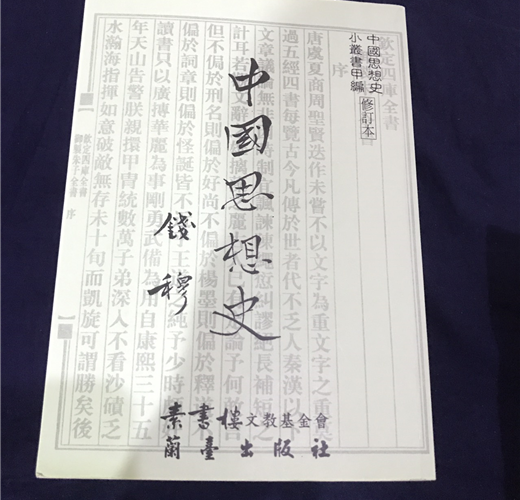 中國思想史
小叢書甲編
修訂本
中國思想史
錢穆
素書樓文教基金會
蘭臺出版社
欽定四庫全書
序
唐虞夏商周聖賢迭作未嘗不以文字為重文字之重
過五經四書每覽古今凡傳於世者代不乏人秦漢以下
文章議論無非 時制 諷諫陳 愆糾謬絕長補短之
計耳 文 論予何敢言
但不偏於刑名則偏於好尚不偏於楊墨則偏於釋
偏於詞章則偏於怪誕皆不 王 純予少時
讀書只以廣博華麗為事剛勇武備為用自康熙三十五
年天山告警朕親擐甲冑統數萬子弟深入不 沙磧乏
水瀚海指揮如意破敵無存未十旬而凱旋可謂勝矣後
欽定四庫全書
御纂朱子全書
序